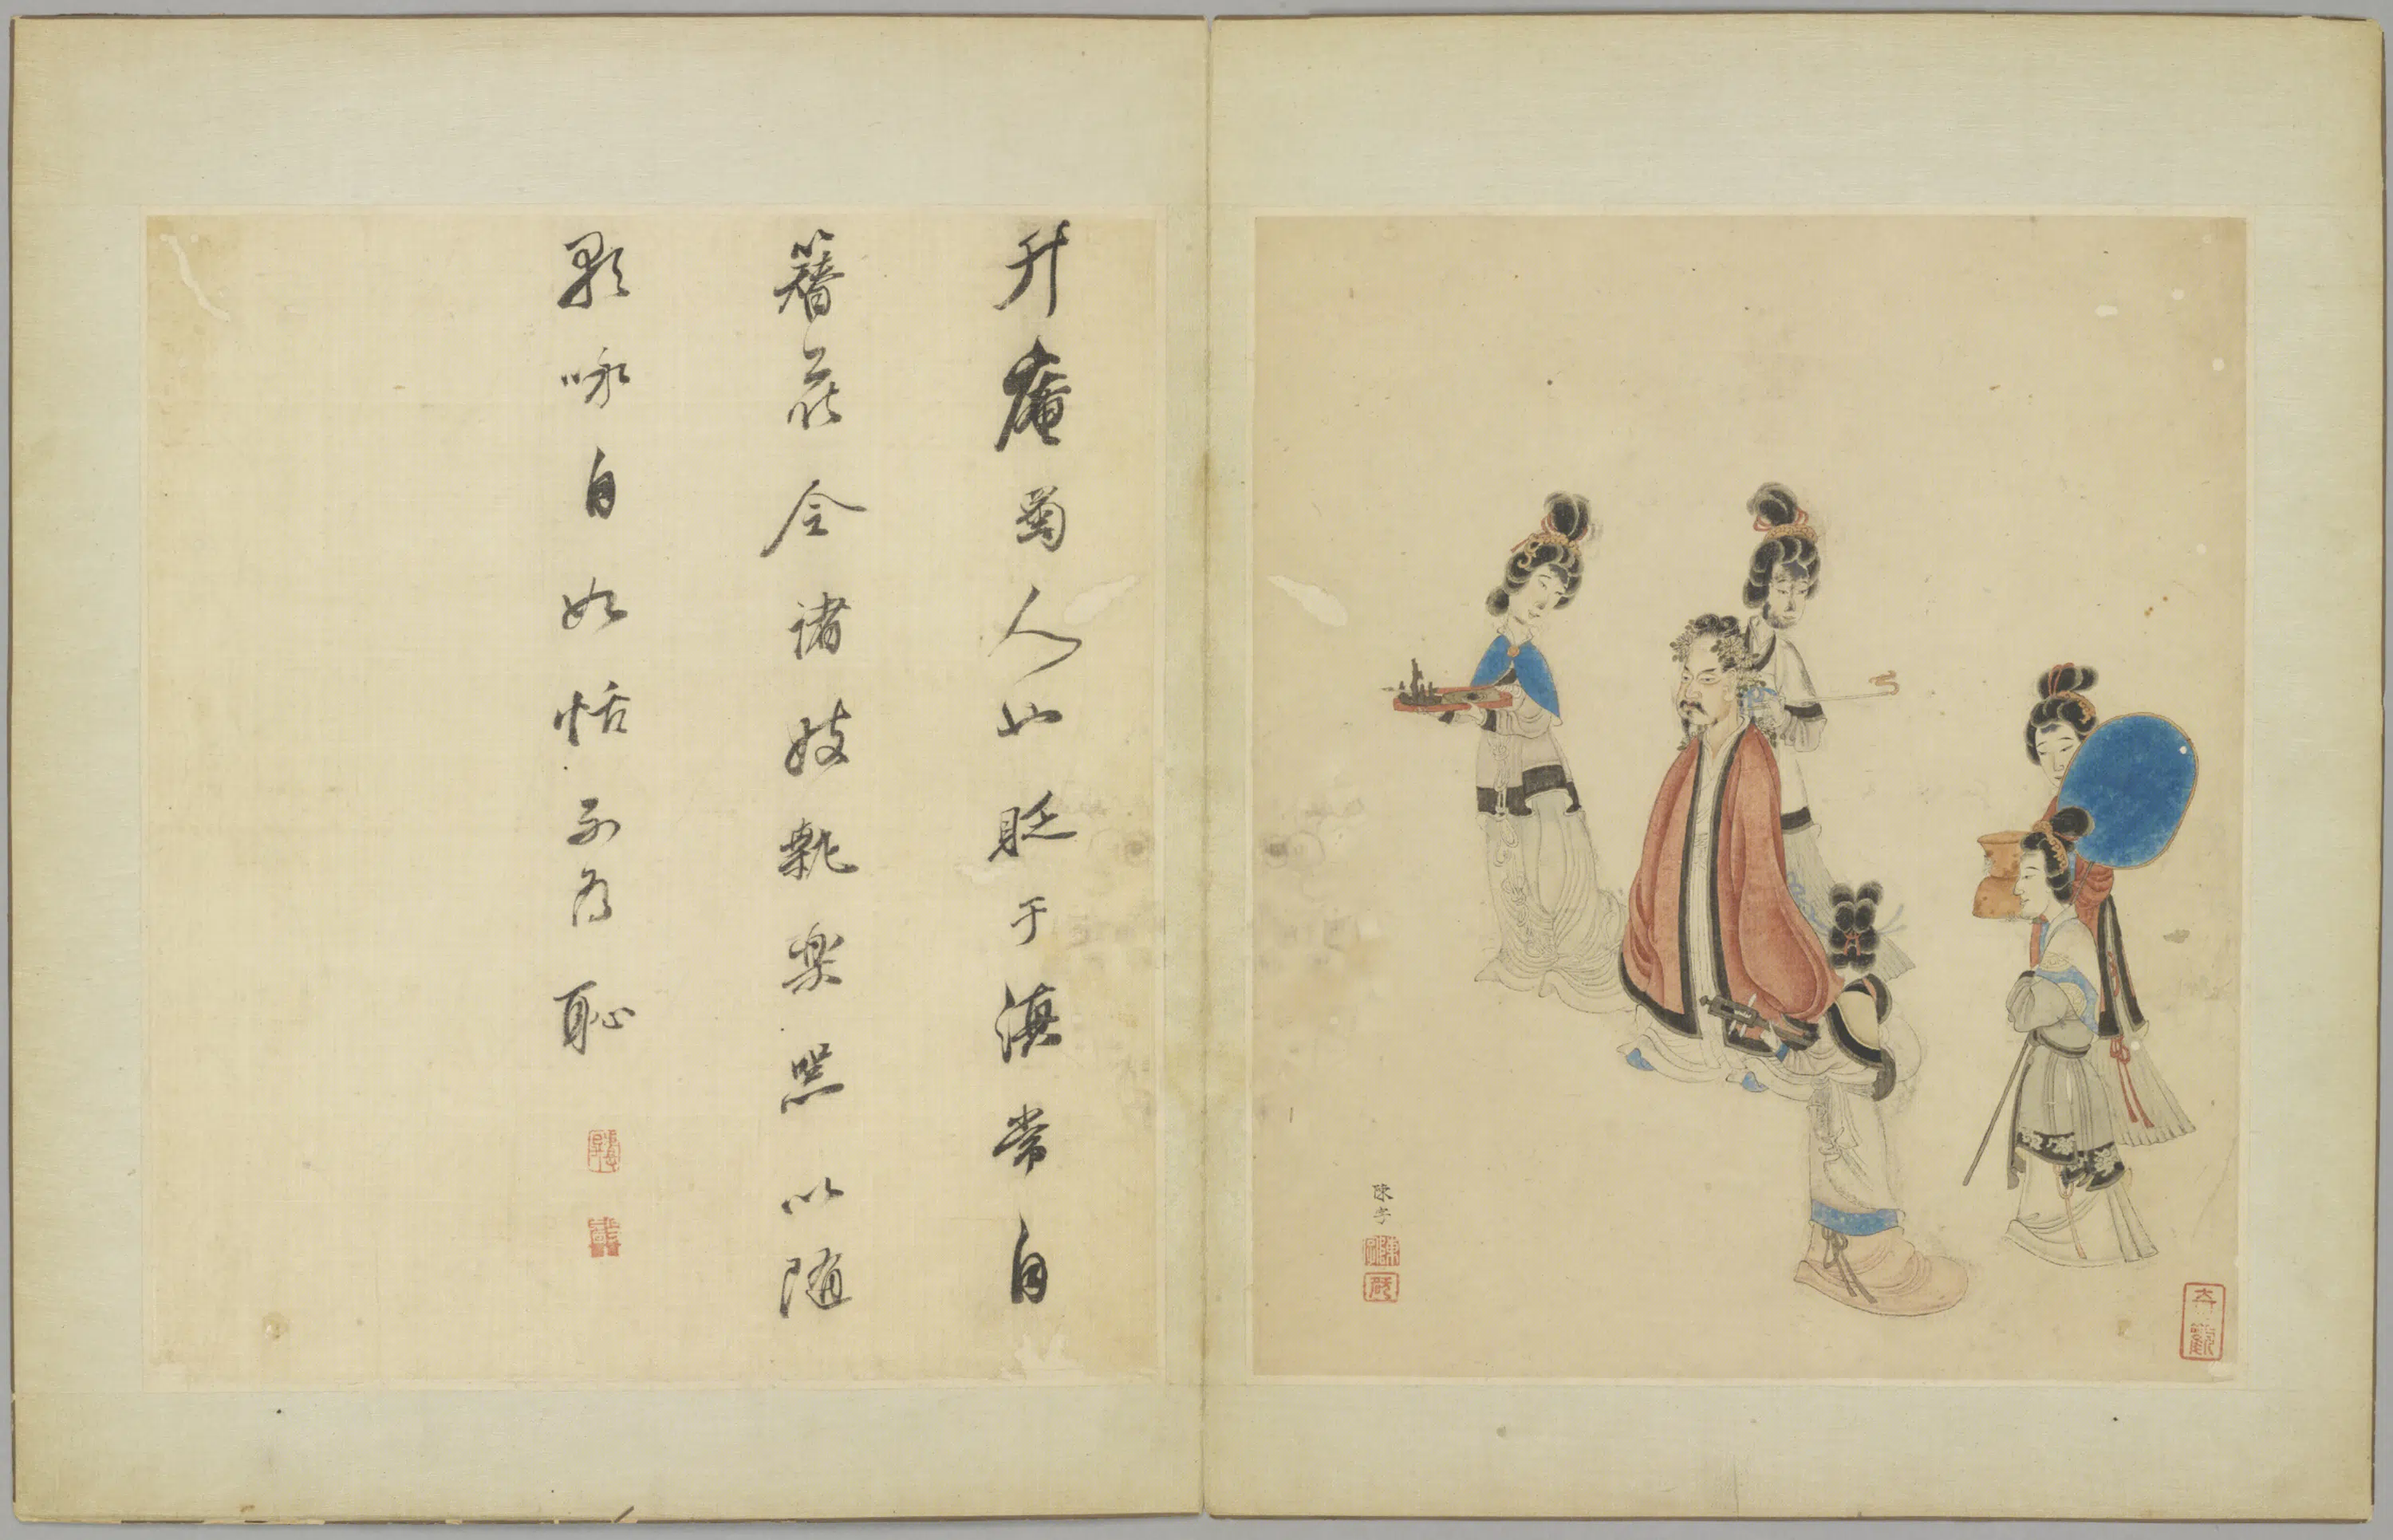 升庵蜀人也貶于滇常自
簪花令諸妓執樂器以随
歌咏自如恬不為恥
陳字